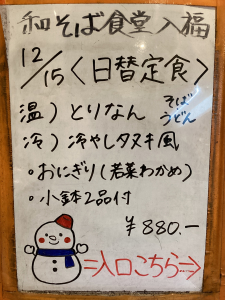 和そば食堂 入福
12/15〈日替定食〉
温）とりなん そば うどん
冷）冷やしタヌキ風
・おにぎり（若菜わかめ）
・小鉢2品付
¥880.-
=入口こちら→